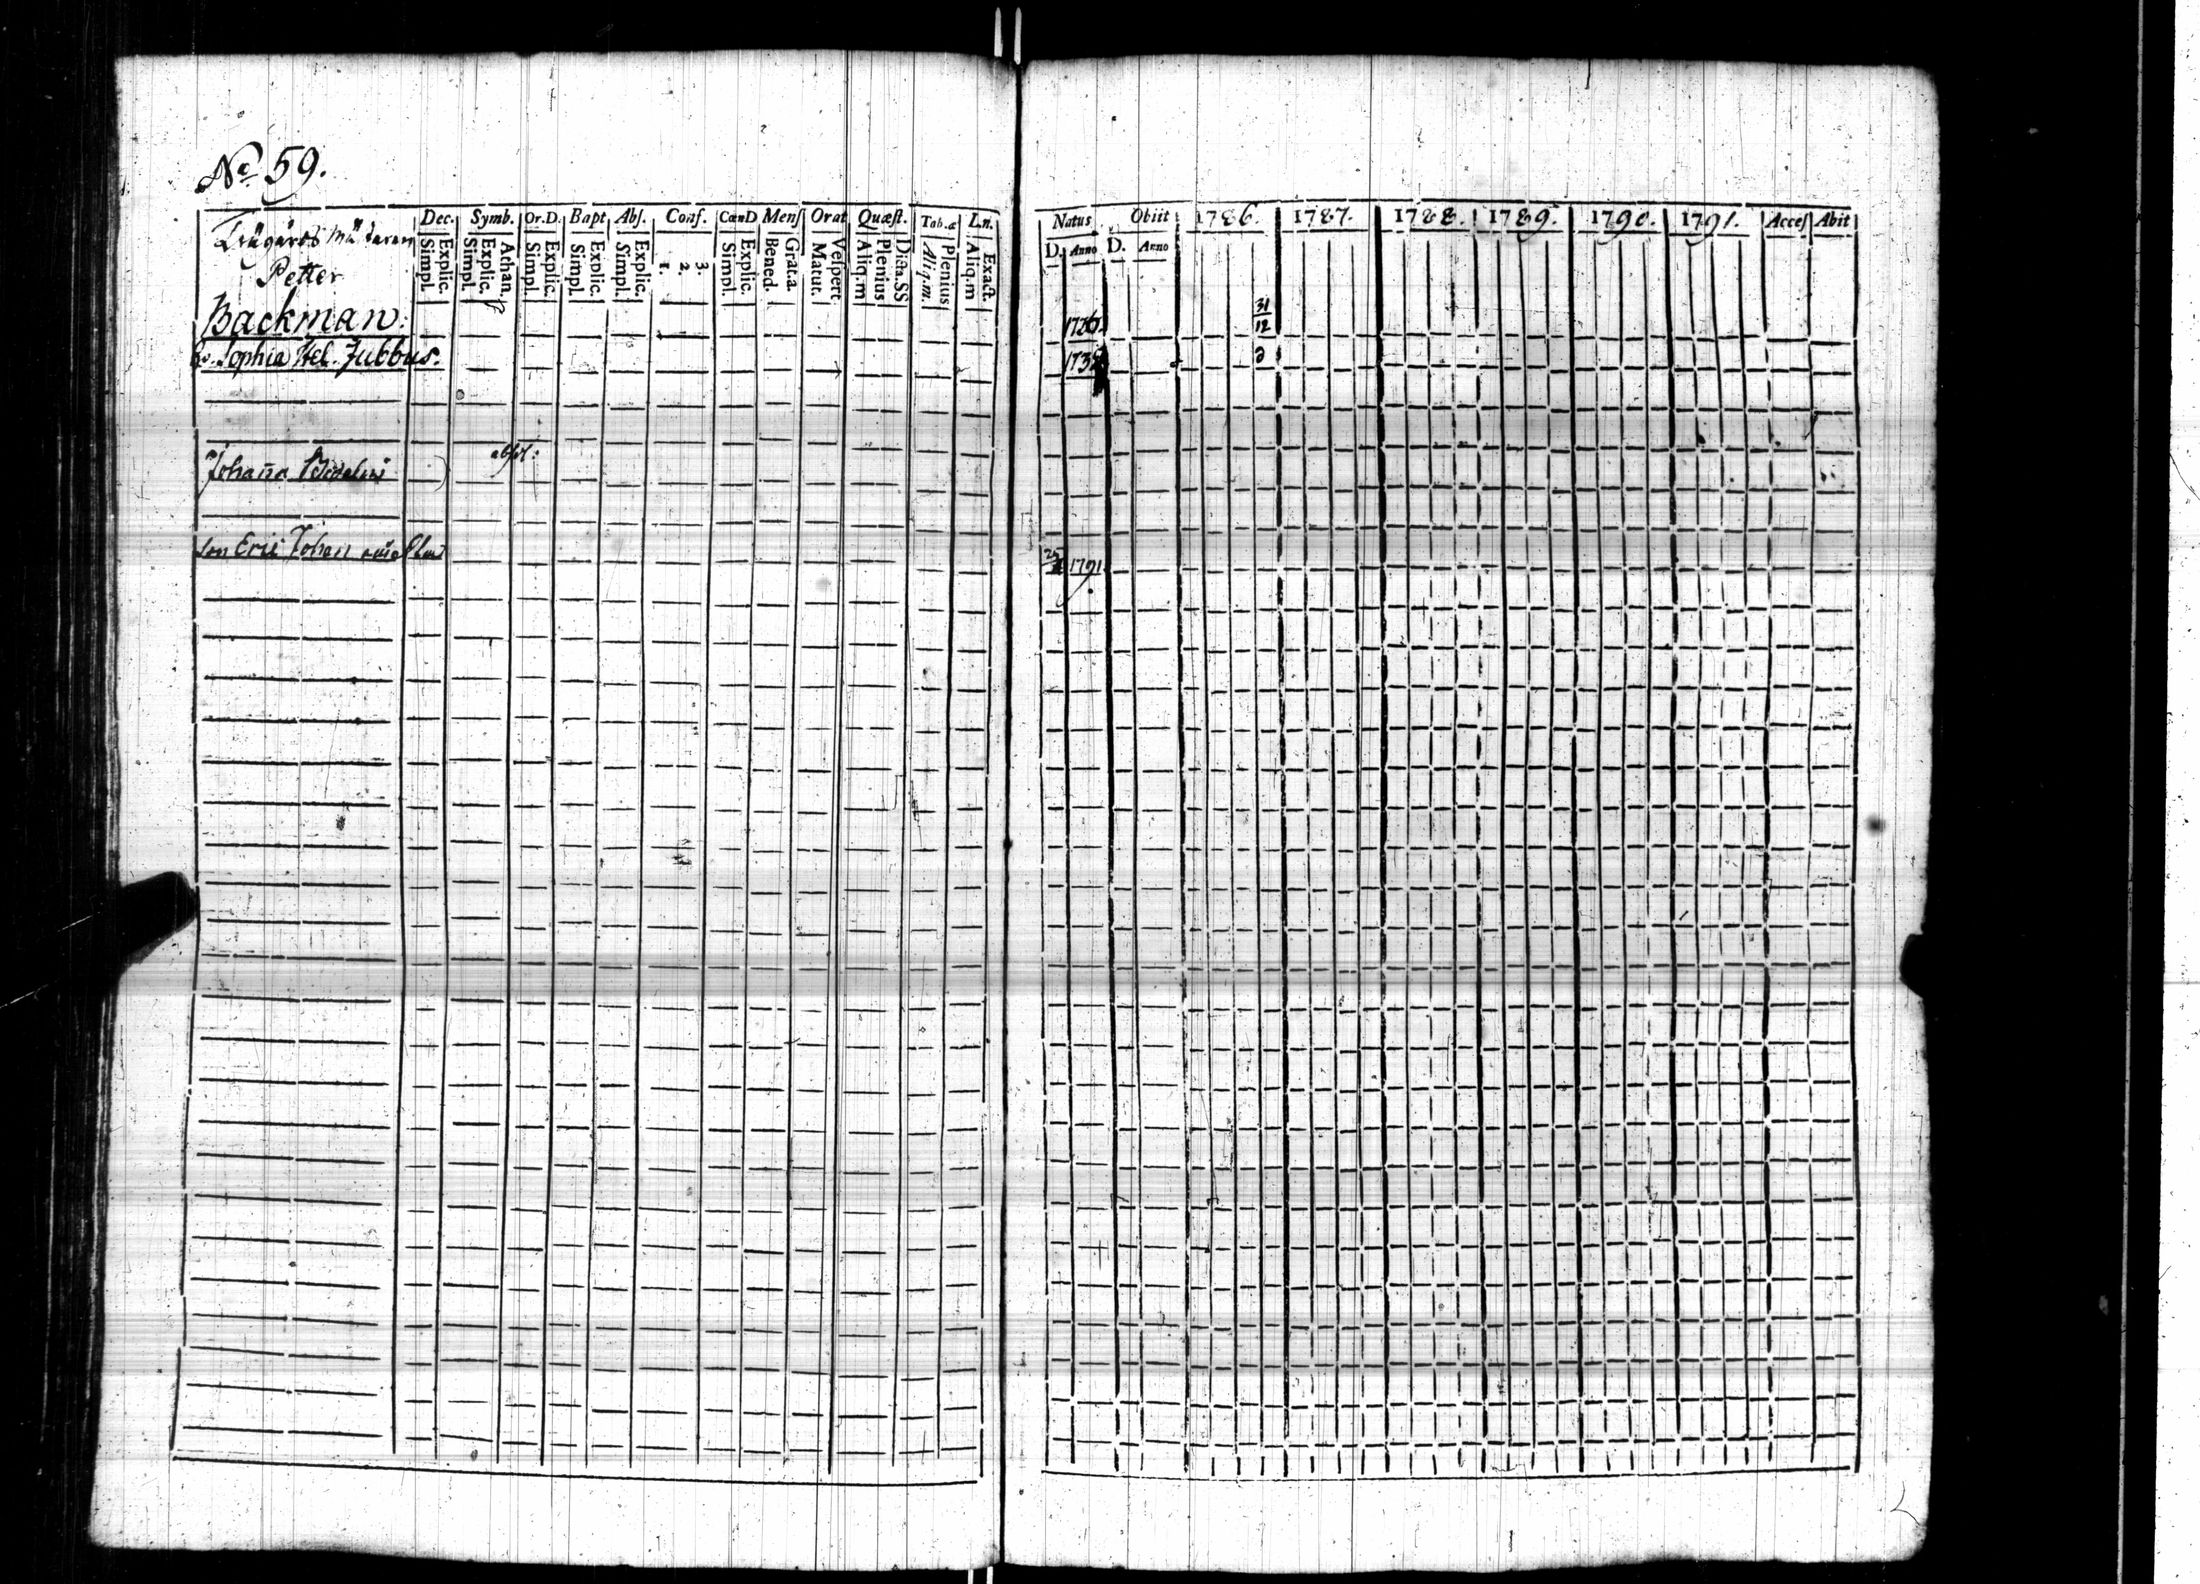 No 59.
Dec. Symb. Or.D. Bapt Abs. Conf. CœnD Menſ Orat Quæſt. Tab.æ L.n.
Simpl. Explic. Simpl. Explic. Athan. Simpl. Explic. Simpl. Explic. Simpl. Explic. 1. 2. 3. Simpl. Explic. Bened. Grat.a Matut. Veſpert Aliq.m Plenius Dicta.SS Aliq.m. Plenius Aliq.m Exact.
Petter
Backman.
Sophia Hel. Jubbus.
abſol:
Johaña
son Eric Johan
Natus Obiit 1786. 1787. 1788. 1789. 1790. 1791. Acceſ Abit
D. Anno D. Anno
1726. 31/12
173
1791